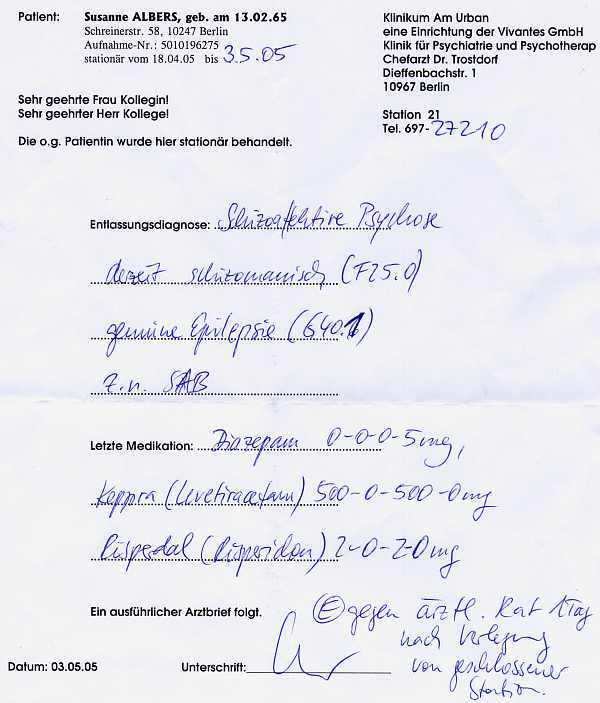 Patient: Susanne ALBERS, geb. am 13.02.65
Schreinerstr. 58, 10247 Berlin
Aufnahme-Nr.: 5010196275
stationär vom 18.04.05 bis 3.5.05
Klinikum Am Urban
eine Einrichtung der Vivantes GmbH
Klinik für Psychiatrie und Psychotherap
Chefarzt Dr. Trostdorf
Dieffenbachstr. 1
10967 Berlin
Station 21
Tel. 697-27210
Sehr geehrte Frau Kollegin!
Sehr geehrter Herr Kollege!
Die o.g. Patientin wurde hier stationär behandelt.
Entlassungsdiagnose: Schizoaffektive Psychose
derzeit schizomanisch (F25.0)
genuine Epilepsie (G40.1)
Z.n. SAB
Letzte Medikation: Diazepam 0-0-0-5mg,
Keppra (Levetiracetam) 500-0-500-0mg
Risperdal (Risperidon) 2-0-2-0mg
Ein ausführlicher Arztbrief folgt.
E gegen ärztl. Rat 1 Tag
nach Verlegung
von geschlossener
Station.
Datum: 03.05.05 Unterschrift: